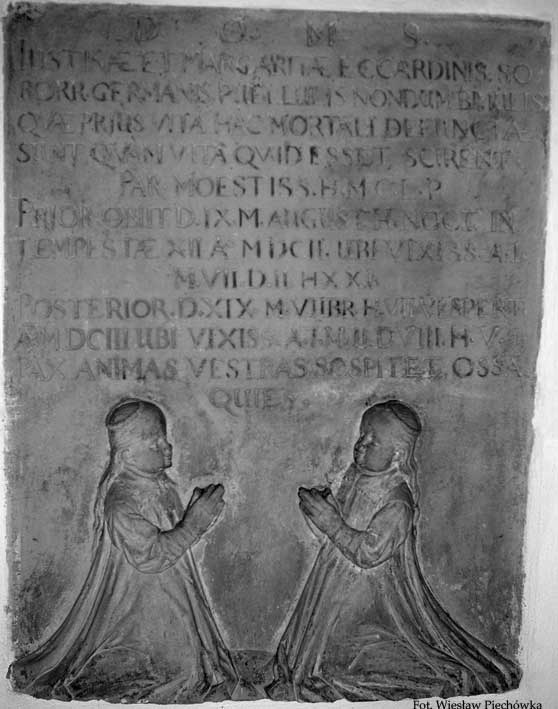 D. O. M. S.
IUSTINÆ ET MARGARITÆ ECCARDINIS. SO
RORR. GERMANIS PUELLULIS NONDUM
QUÆ PRIUS VITA HAC MORTALI DEFUNCTÆ
SUNT QUAM VITA QUID ESSET, SCIRENT
PAR MOESTISS. H. M. C. L. P.
PRIOR OBIIT D. IX. M. AUGUST. H. NOCT. IN
TEMPESTÆ XII A. M DCII. UBI VIXISS. A. I.
M. VII. D. II. H. XX.
POSTERIOR. D. XIX M. VIIBR. H. VII. VESPERT.
A. M DCIII UBI VIXISS. A. I. M. II. D. VIII. H. V.
PAX ANIMAS VESTRAS SOSPITET, OSSA
QUIES.
Fot. Wiesław Piechówka